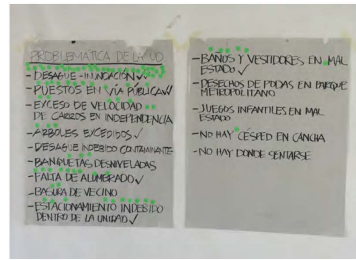 PROBLEMÁTICA DE LA UD
- DESAGUE - INUNDACIÓN ✓
- PUESTOS EN VÍA PÚBLICA ✓
- EXCESO DE VELOCIDAD
DE CARROS EN INDEPENDENCIA
- ARBOLES EXCEDIDOS ✓
- DESAGUE INDEBIDO CONTAMINANTE
- BANQUETAS DESNIVELADAS
- FALTA DE ALUMBRADO ✓
- BASURA DE VECINO
- ESTACIONAMIENTO INDEBIDO
DENTRO DE LA UNIDAD ✓
- BAÑOS Y VESTIDORES EN MAL
ESTADO ✓
- DESECHOS DE PODAS EN PARQUE
METROPOLITANO
- JUEGOS INFANTILES EN MAL
ESTADO
- NO HAY CESPED EN CANCHA
- NO HAY DONDE SENTARSE